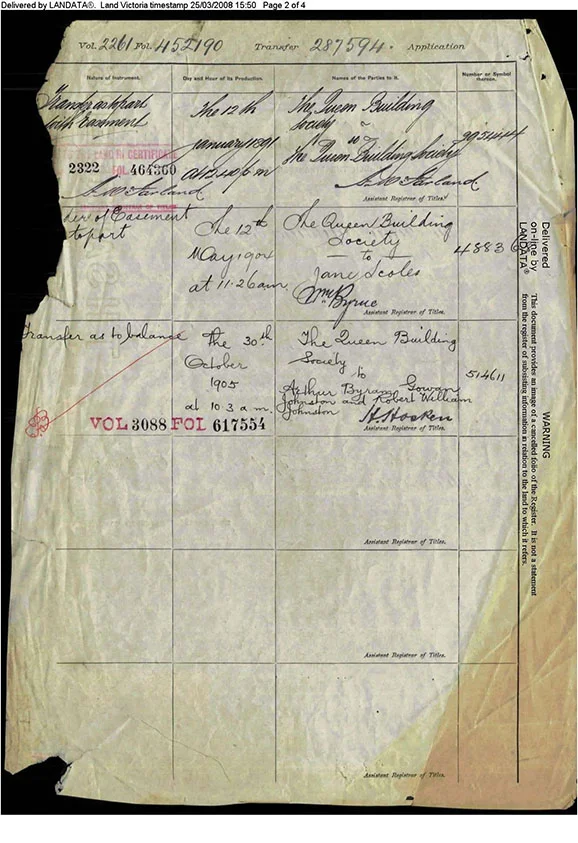 Delivered by LANDATA®. Land Victoria timestamp 25/03/2008 15:50 Page 2 of 4
Vol. 2261 Fol. 452190 Transfer 287594. Application
Nature of Instrument.
Day and Hour of its Production.
Names of the Parties to it.
Number or Symbol thereon.
Transfer as to part
with Easement
The 12th
January 1891
at
The Queen Building
Society
to
The Queen Building Society
LAND IN CERTIFICATE
2322 FOL 464360
Assistant Registrar of Titles.
der of Easement
to part
The 12th
May 1904
at 11.26 am
The Queen Building
Society
to
Jane Scoles
Wm Byrne
Assistant Registrar of Titles.
4883
Transfer as to balance
The 30th
October
1905
at 10.3 a.m.
The Queen Building
Society
to
Arthur Byram Gowan
Johnston and Robert William
Johnston
H. Hosken
Assistant Registrar of Titles.
514611
VOL 3088 FOL 617554
Assistant Registrar of Titles.
Assistant Registrar of Titles.
Assistant Registrar of Titles.
Delivered
on-line by
LANDATA®
WARNING
This document provides an image of a cancelled folio of the Register. It is not a statement
from the register of subsisting information in relation to the land to which it refers.